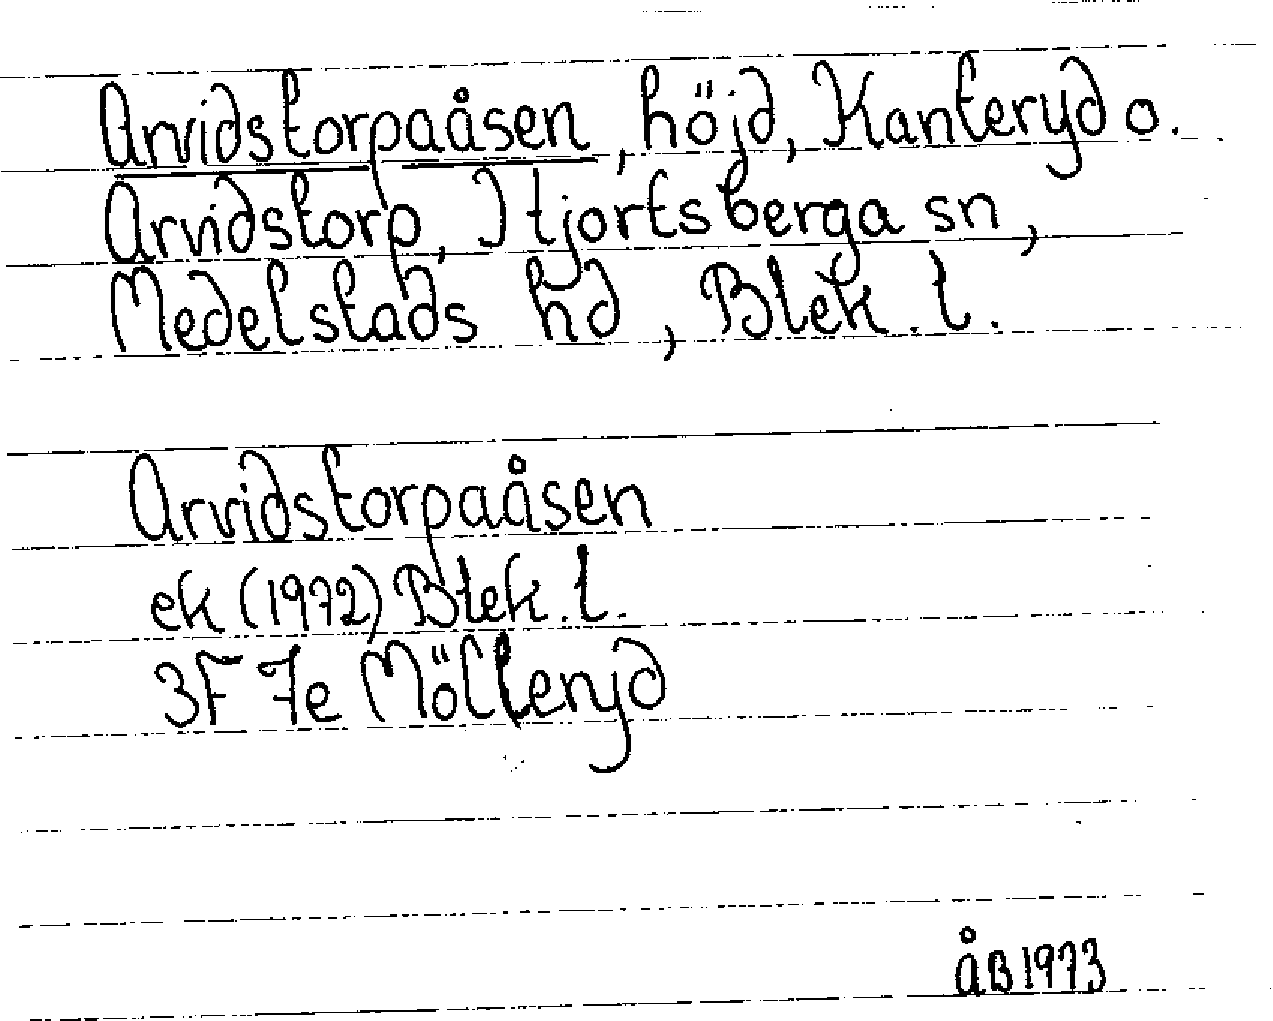 Arvidstorpaåsen, höjd, Kanteryd o.
Arvidstorp, Hjortsberga sn,
Medelstads hd, Blek. l.
Arvidstorpaåsen
ek (1972) Blek. l.
3F 7e Mölleryd
åB 1973